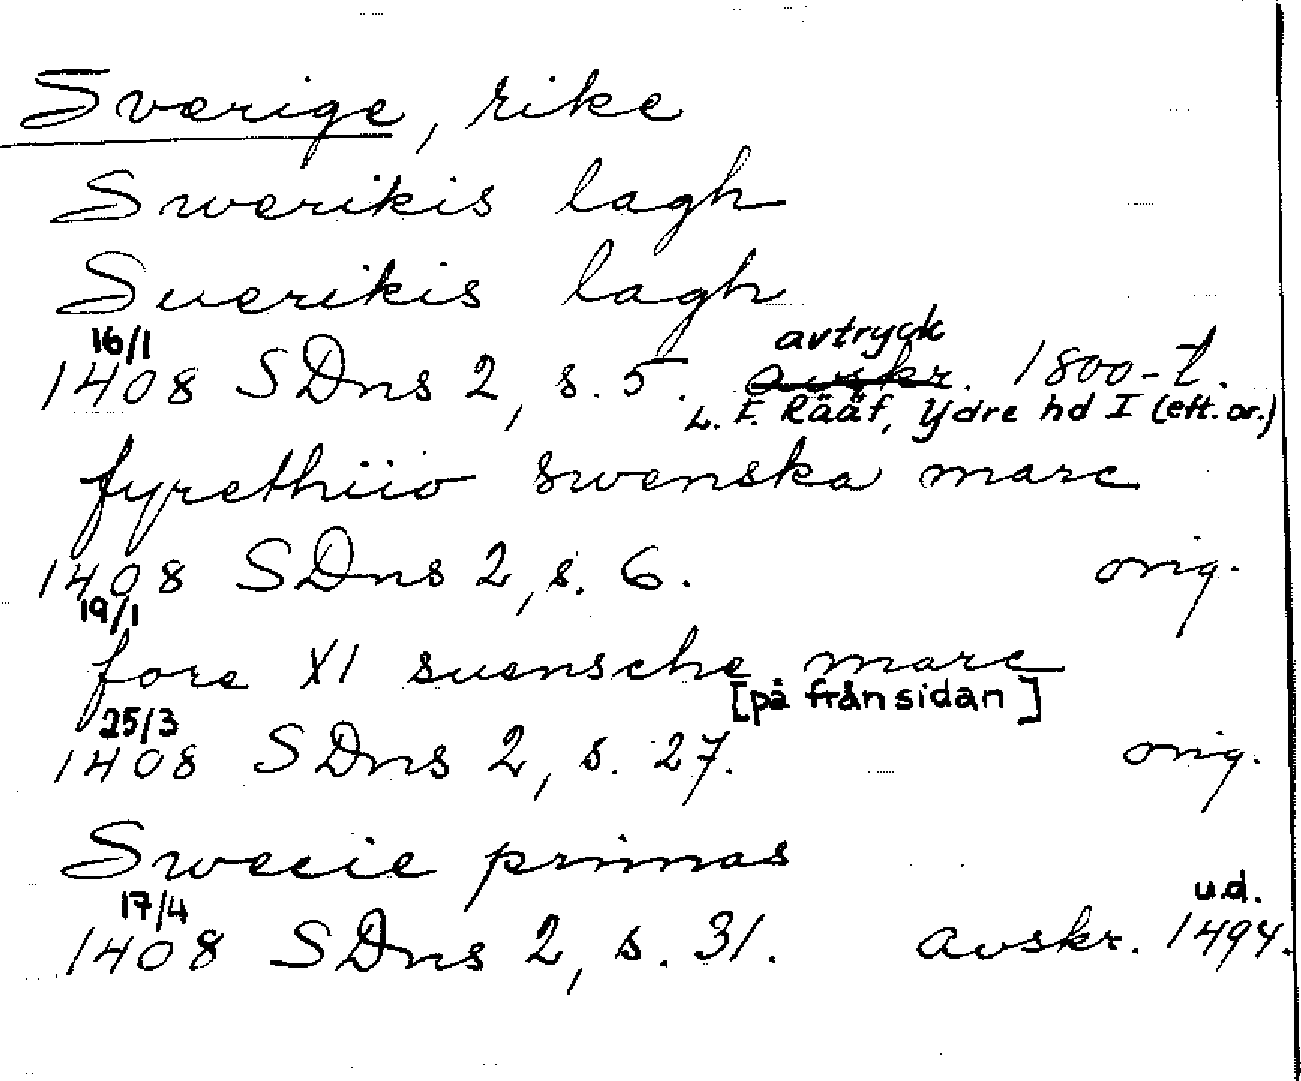 Sverige, rike
Swerikis lagh
Suerikis lagh
16/1 avtryck
1408 SDns 2, s. 5. avskr. 1800-t.
L. F. Rääf, Ydre hd I (eft. or.)
fyrethiio swenska marc
1408 SDns 2, s. 6. orig.
19/1
fore XI suensche marc
[på frånsidan]
25/3
1408 SDns 2, s. 27. orig.
Swecie primas
17/4 u.d.
1408 SDns 2, s. 31. avskr. 1494.